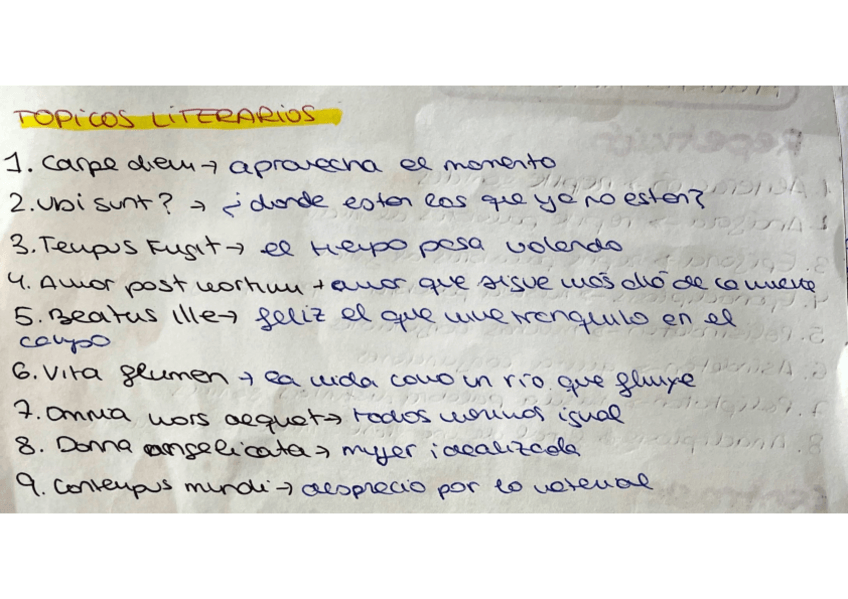 TOPICOS LITERARIOS
1. Carpe diem → aprovecha el momento
2. Ubi sunt? → ¿donde estan los que ya no estan?
3. Tempus Fugit → el tiempo pasa volando
4. Amor post mortum → amor que sigue más allá de la muerte
5. Beatus Ille → feliz el que vive tranquilo en el
campo
6. Vita flumen → la vida como un río que fluye
7. Omnia mors aequat → todos morimos igual
8. Donna angelicata → mujer idealizada
9. Contempus mundi → desprecio por lo material